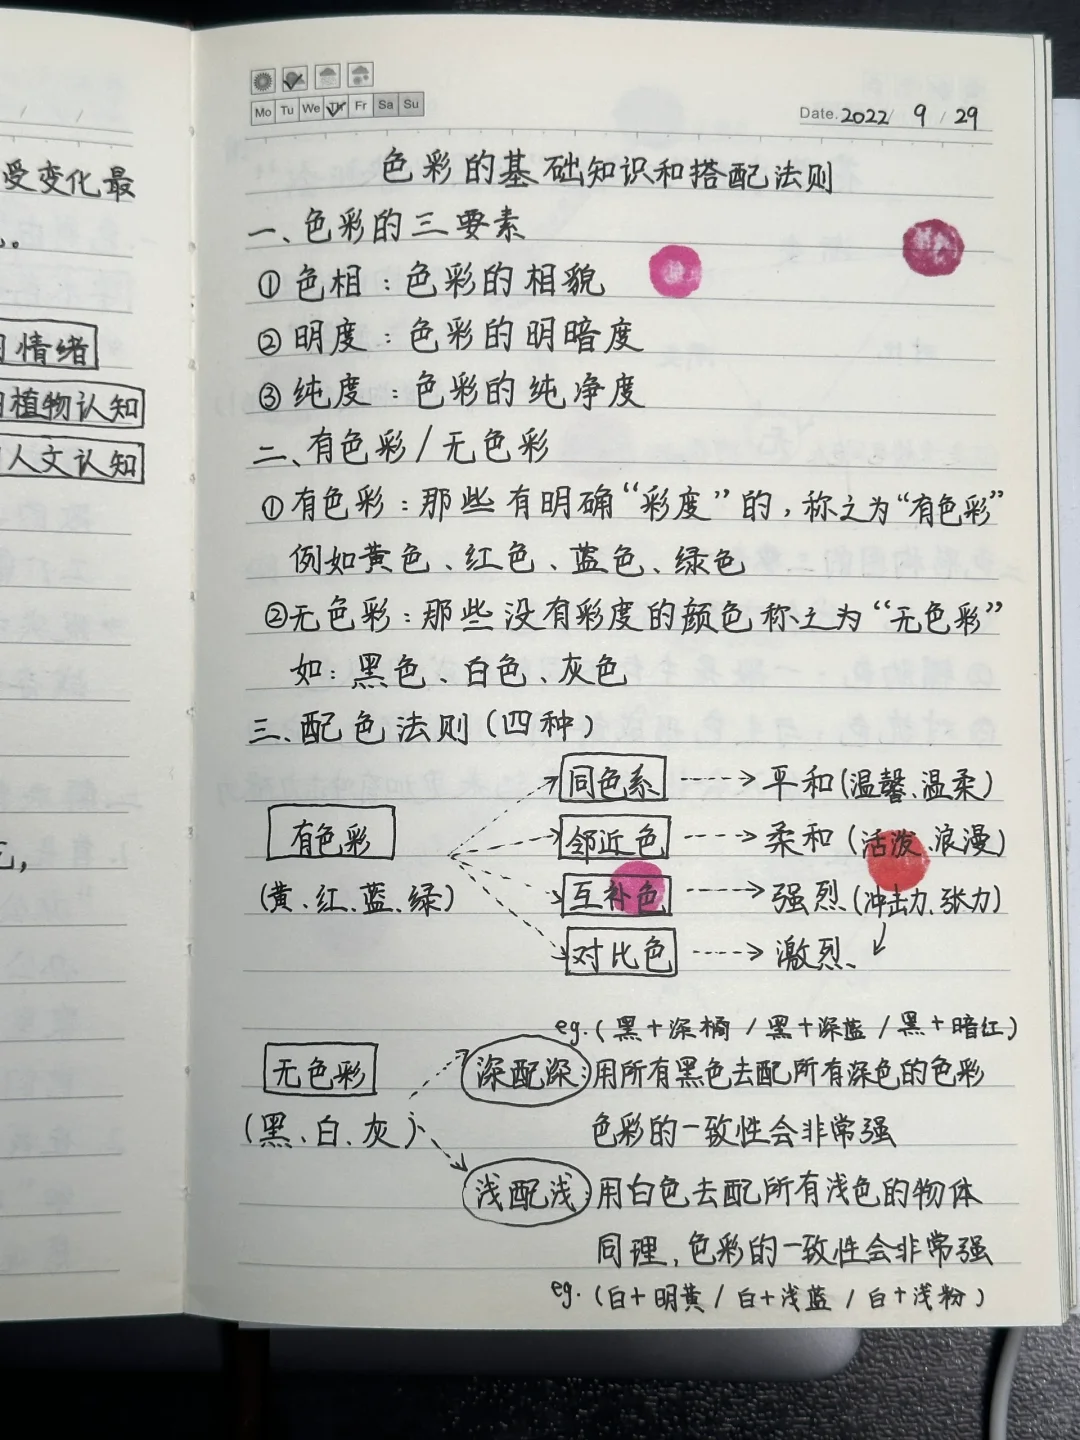 受变化最
情绪
植物认知
人文认知
Mo Tu We Th Fr Sa Su
Date. 2022/ 9 / 29
色彩的基础知识和搭配法则
一、色彩的三要素
① 色相：色彩的相貌
② 明度：色彩的明暗度
③ 纯度：色彩的纯净度
二、有色彩/无色彩
① 有色彩：那些有明确“彩度”的，称之为“有色彩”
例如黄色、红色、蓝色、绿色
② 无色彩：那些没有彩度的颜色称之为“无色彩”
如：黑色、白色、灰色
三、配色法则(四种)
有色彩
(黄、红、蓝、绿)
同色系 → 平和(温馨、温柔)
邻近色 → 柔和(活泼、浪漫)
互补色 → 强烈(冲击力、张力)
对比色 → 激烈、
eg.(黑+深橘/黑+深蓝/黑+暗红)
无色彩
(黑、白、灰)
深配深：用所有黑色去配所有深色的色彩
色彩的一致性会非常强
浅配浅：用白色去配所有浅色的物体
同理，色彩的一致性会非常强
eg.(白+明黄/白+浅蓝/白+浅粉)